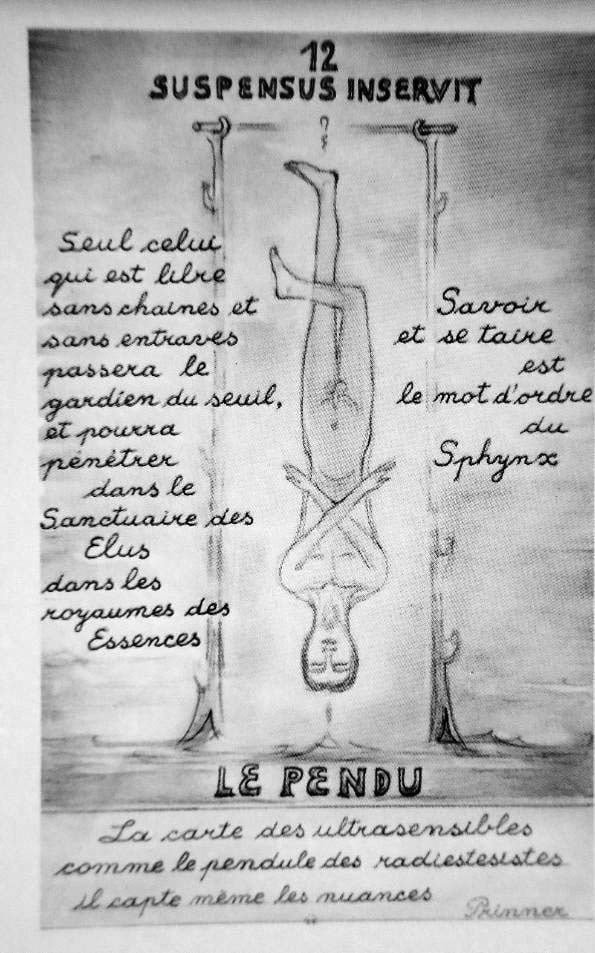 12
SUSPENSUS INSERVIT
Seul celui
qui est libre
sans chaines et
sans entraves
passera le
gardien du seuil,
et pourra
pénétrer
dans le
Sanctuaire des
Elus
dans les
royaumes des
Essences
Savoir
et se taire
est
le mot d'ordre
du
Sphynx
LE PENDU
La carte des ultrasensibles
comme le pendule des radiestesistes
il capte même les nuances
Prinner